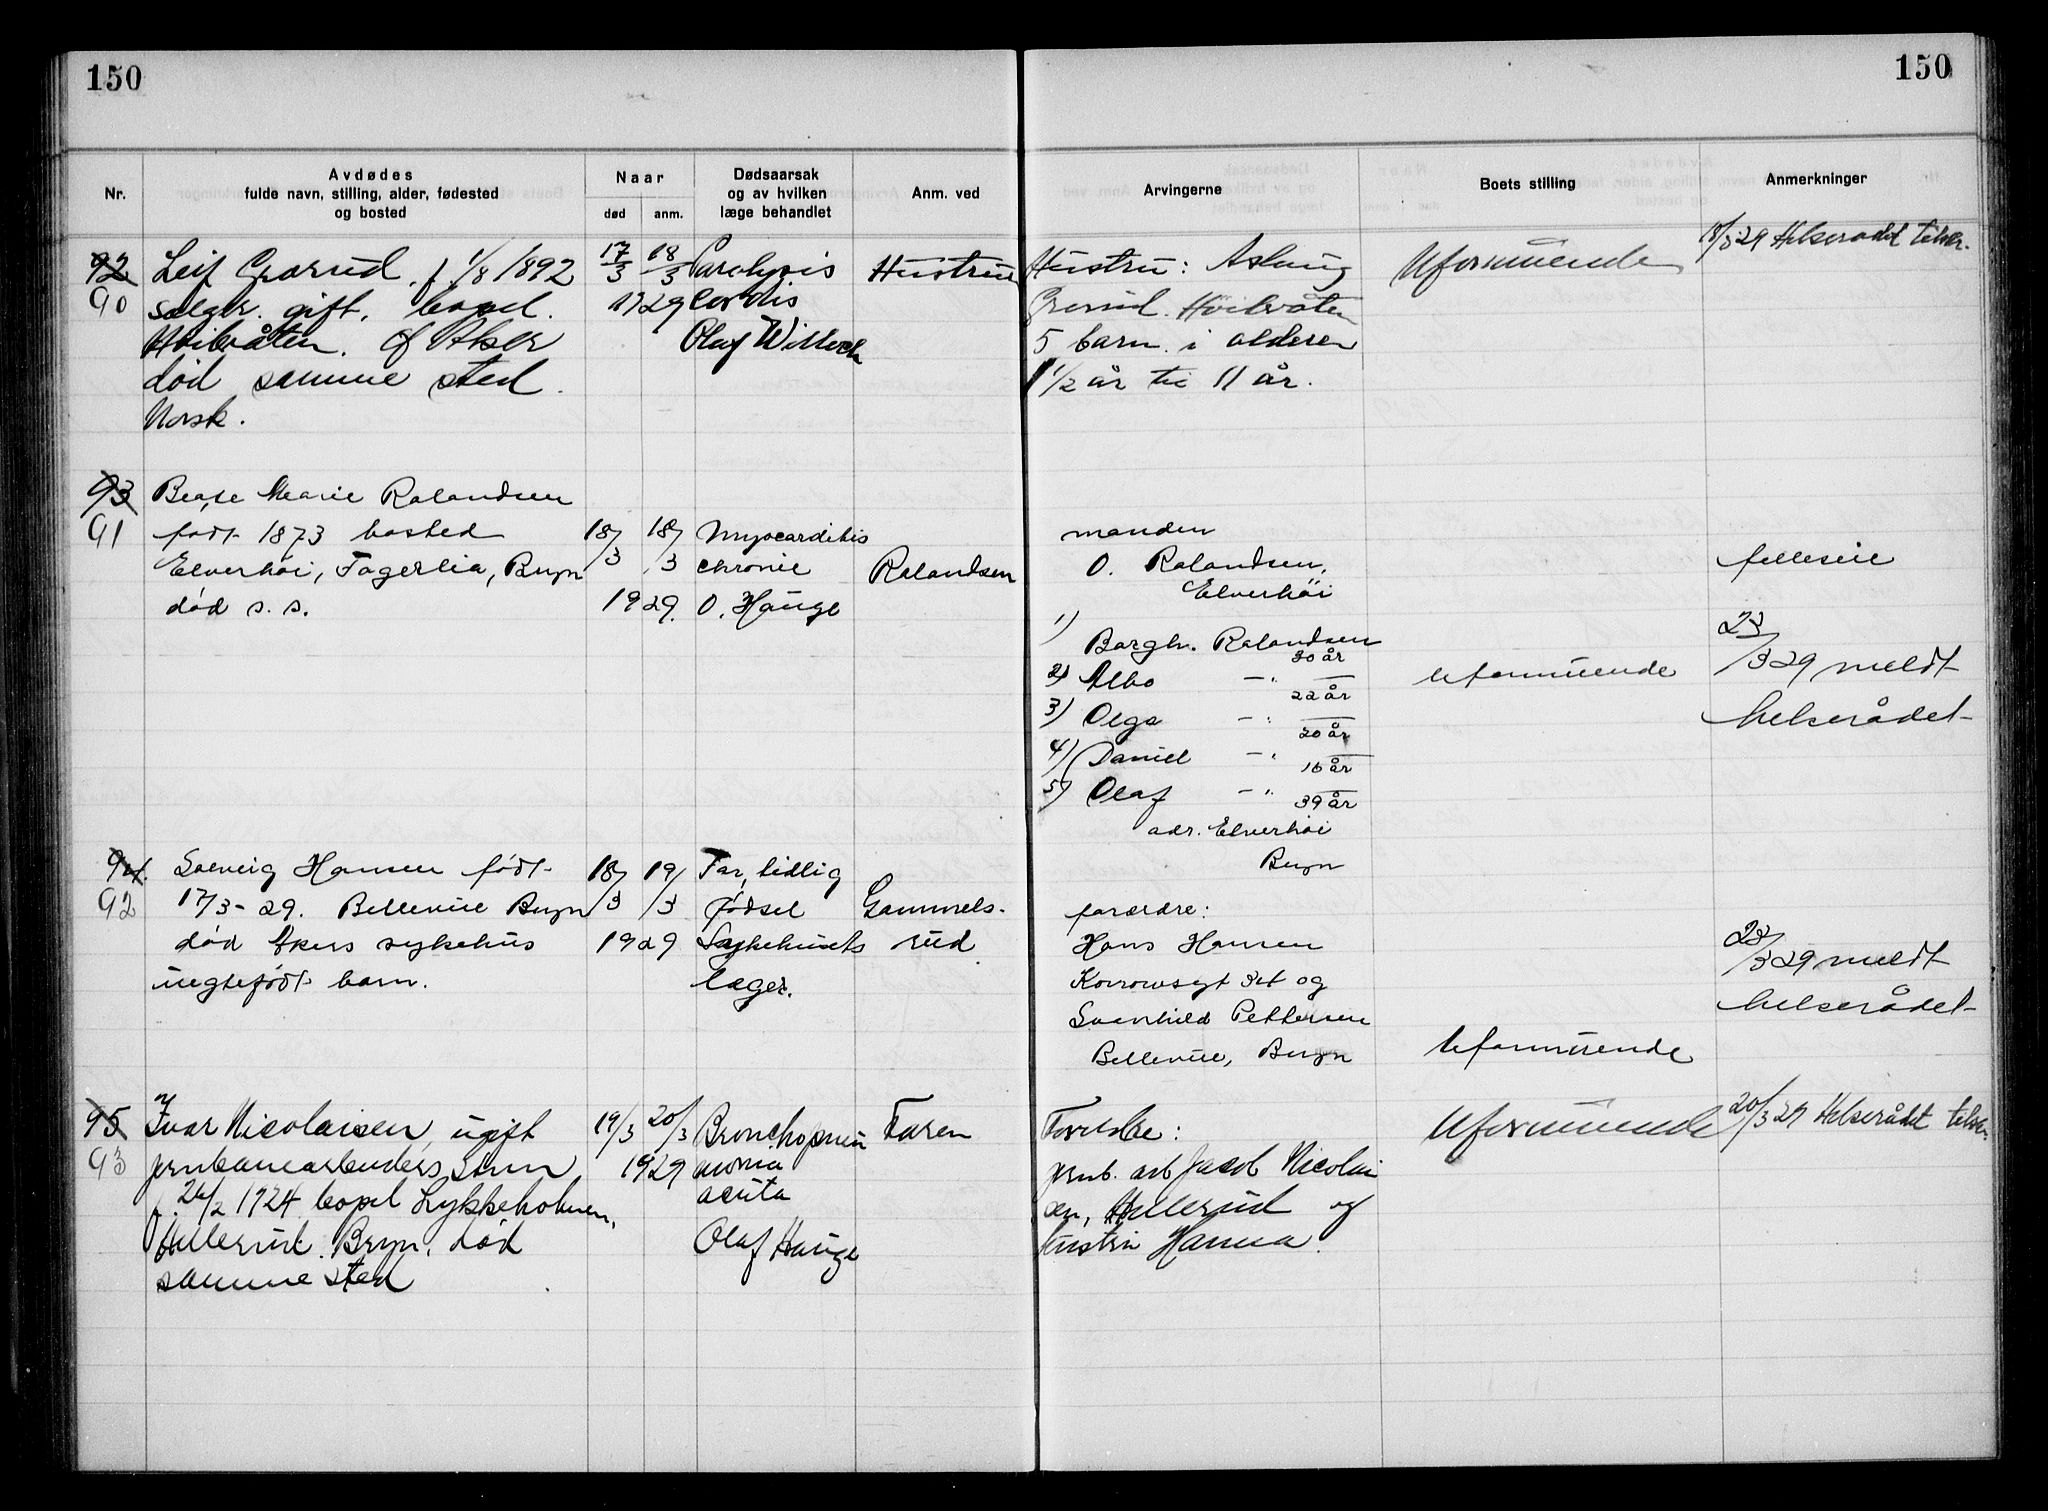 150
150
Nr.
Avdødes
fulde navn, stilling, alder, fødested
og bosted
Naar
død
anm.
Dødsaarsak
og av hvilken
læge behandlet
Anm. ved
Arvingerne
Boets stilling
Anmerkninger
92
90
Leif Grorud, f 1/8 1892
gift, bopel.
Hvilvåten. Aker
død samme sted.
Norsk.
17/3
18/3
1929
Paralysis
Cordis
Olaf
Hustru
Hustru: Aslaug
Grorud. Hvilvåten
5 barn i alderen
1 1/2 år til 11 år.
Uformuende
18/3 29 Helserådet tilskr.
93
91
Beate Marie Rolandsen
født 1873 bosted
Elverhöi, Fagerlia, Bryn
død s. s.
18/3
18/3
1929.
Myocarditis
chronic
O. Hauge
Rolandsen
manden
O. Rolandsen,
Elverhöi
1) Borgh. Rolandsen
30 år
2) -"-
22 år
3) Olga -"-
20 år
4) Daniel -"-
16 år
5) Olaf -"-
39 år
adr. Elverhöi
Bryn
uformuende
felleseie
23/3 29 meldt
helserådet
94.
92
Solveig Hansen født
17/3-29. Bellevue Bryn
død Akers sykehus
uegtefødt barn.
18/3
19/3
1929
For tidlig
fødsel
Sykehusets
læger.
Gammels-
rud
foreldre:
Hans Hansen
og
Svanhild Pettersen
Bellevue, Bryn
Uformuende
23/3 29 meldt
helserådet
95
93
Ivar Nicolaisen, ugift
jernbanearbeiders sønn
f. 26/2 1924 bopel Lykkeholmen,
Hellerud. Bryn. død
samme sted
19/3
20/3
1929
Bronchopneu
monia
acuta
Olaf Hauge
Faren
Foreldre:
jernb. arb Jacob Nicolai
sen, Hellerud og
hustru Hanna.
Uformuende
20/3 29 Helserådet tilskr.